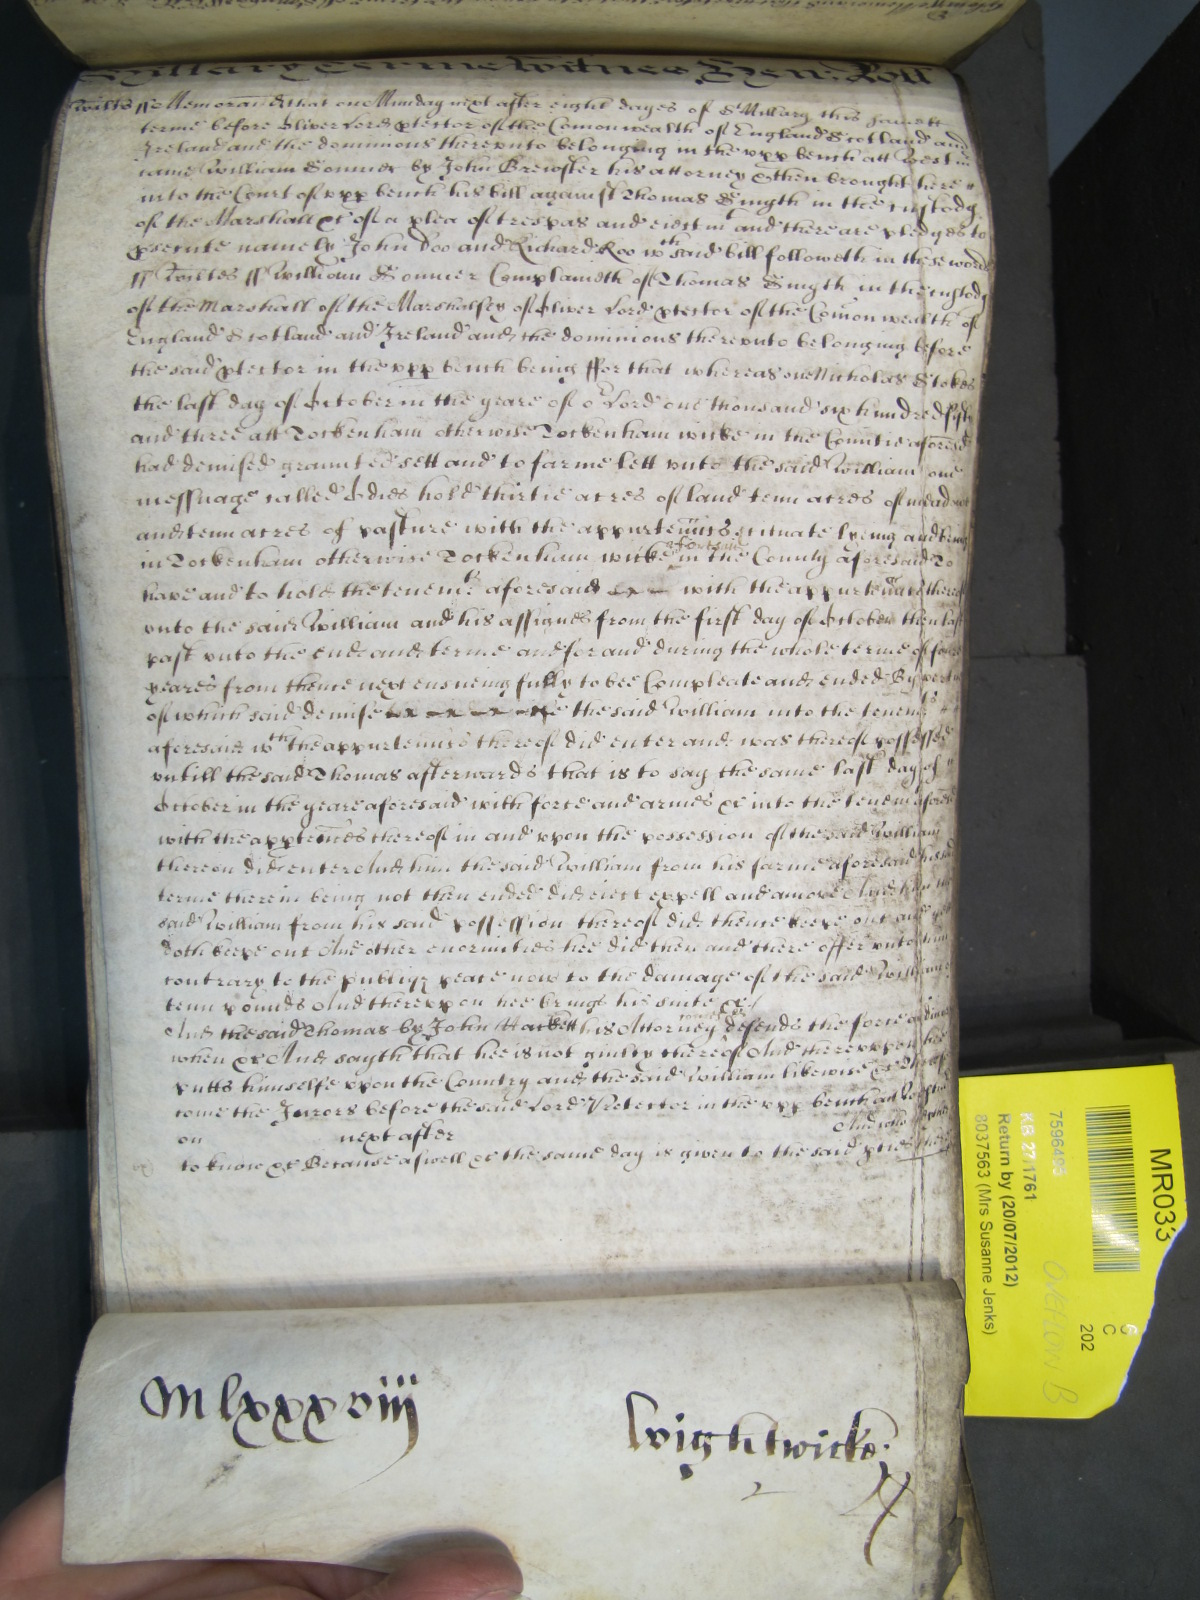 Hillary Terme Witnes Hen: Roll
Wilts ss Memorand that on Munday next after eight dayes of St Hillary this same
terme before Oliver Lord Ptector of the Comonwealth of England Scotland and
Ireland and the dominions thereunto belonging in the upp bench att Westm
came William Sommer by John Brewster his attorney & then brought here
into the Court of upp bench his bill against Thomas Smyth in the custody
of the Marshall &c of a plea of trespas and eiectmt and there are pledges to
psecute namely John Doo and Richard Roo wth said bill followeth in these words
ss Wiltes ss William Sommer Complaineth of Thomas Smyth in the custody
of the Marshall of the Marshalsey of Oliver Lord ptector of the Comon wealth of
England Scotland and Ireland and the dominions thereunto belonging before
the said ptector in the upp bench being ffor that whereas one Nicholas Stokes
the last day of October in the yeare of or Lord one thousand six hundred fifty
and three att Tockenham otherwise Tockenham wicke in the Countie aforesd
had demised graunted sett and to farme lett unto the said William one
messuage called hold thirtie acres of land tenn acres of meadow
and tenn acres of pasture with the appurtenncs scituate lyeing and being
in Tockenham otherwise Tockenham wicke aforesaid in the County aforesaid To
have and to hold the tenemts aforesaid with the appurtenncs thereof
unto the said William and his assignes from the first day of October then last
past unto the end and terme and for and during the whole terme of
yeares from thence next ensueing fully to bee Compleate and ended By vertue
of which said demise the said William into the tenemts
aforesaid wth the appurtenncs thereof did enter and was thereof possessed
untill the said Thomas afterwards that is to say the same last day of
October in the yeare aforesaid with force and armes &c into the tenemts aforesd
with the apptennes thereof in and upon the possession of the said William
thereon did enter And him the said William from his farme aforesaid his said
terme therein being not then ended did eiect expell and amove And him the
said William from his said possession thereof did thence keepe out and yet
doth keepe out And other enormities hee did then and there offer unto him
contrary to the publiq peace now to the damage of the said William
tenn pounds And thereuppon hee brings his suite &c /
And the said Thomas by John Hackett his Attorney comes & defends the force and iniury
when &c And sayth that hee is not guilty thereof And thereuppon hee
putts himselfe upon the Country and the said William likewise &c Therefore
come the Jurors before the said Lord Protector in the upp bench att Westm
on next after And who neither
to know &c Because aswell &c the same day is given to the said pties there
Mlxxxviij
Wightwicke:
MR033
202
7596495
KB 27/1761
Return by (20/07/2012)
8037563 (Mrs Susanne Jenks)